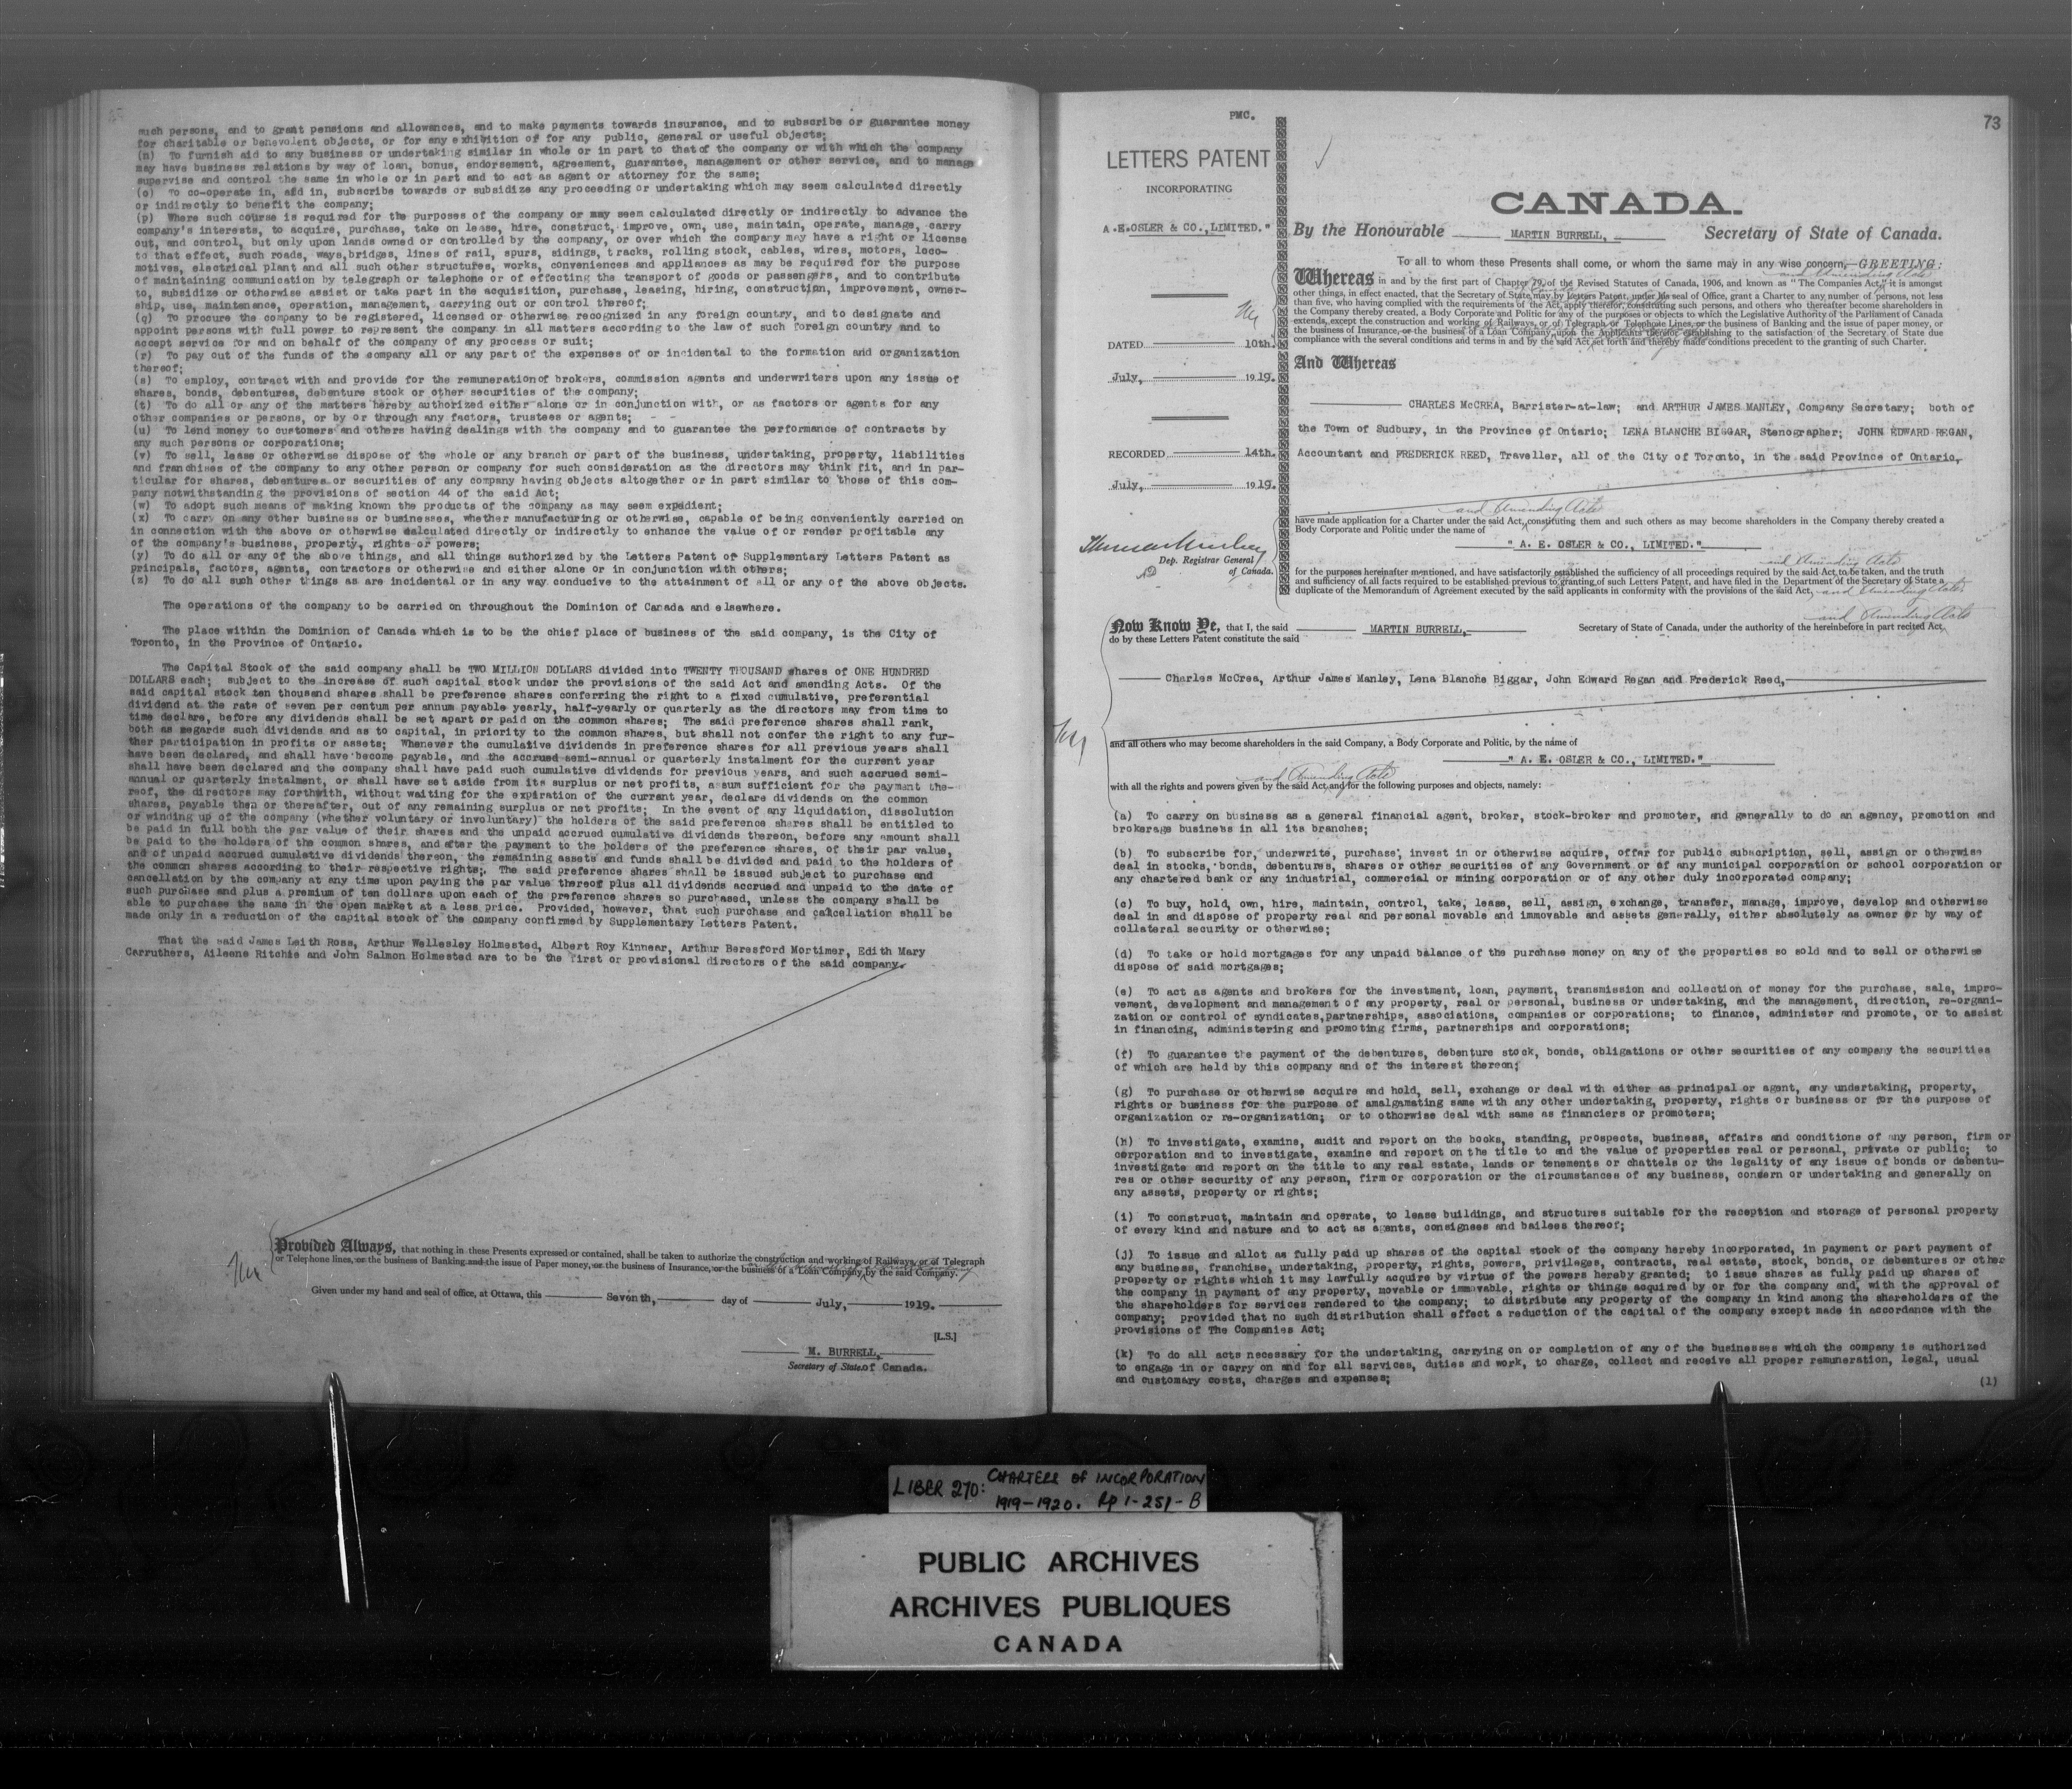 such persons, and to grant pensions and allowances, and to make payments towards insurance, and to subscribe or guarantee money
for charitable or benevolent objects, or for any exhibition of for any public, general or useful objects;
(n) To furnish aid to any business or undertaking similar in whole or in part to that of the company or with which the company
may have business relations by way of loan, bonus, endorsement, agreement, guarantee, management or other service, and to manage
supervise and control the same in whole or in part and to act as agent or attorney for the same;
(o) To co-operate in, aid in, subscribe towards or subsidize any proceeding or undertaking which may seem calculated directly
or indirectly to benefit the company;
(p) Where such course is required for the purposes of the company or may seem calculated directly or indirectly to advance the
company's interests, to acquire, purchase, take on lease, hire, construct, improve, own, use, maintain, operate, manage, carry
out, and control, but only upon lands owned or controlled by the company, or over which the company may have a right or license
to that effect, such roads, ways, bridges, lines of rail, spurs, sidings, tracks, rolling stock, cables, wires, motors, loco-
motives, electrical plant and all such other structures, works, conveniences and appliances as may be required for the purpose
of maintaining communication by telegraph or telephone or of effecting the transport of goods or passengers, and to contribute
to, subsidize or otherwise assist or take part in the acquisition, purchase, leasing, hiring, construction, improvement, owner-
ship, use, maintenance, operation, management, carrying out or control thereof;
(q) To procure the company to be registered, licensed or otherwise recognized in any foreign country, and to designate and
appoint persons with full power to represent the company in all matters according to the law of such foreign country and to
accept service for and on behalf of the company of any process or suit;
(r) To pay out of the funds of the company all or any part of the expenses of or incidental to the formation and organization
thereof;
(s) To employ, contract with and provide for the remuneration of brokers, commission agents and underwriters upon any issue of
shares, bonds, debentures, debenture stock or other securities of the company;
(t) To do all or any of the matters hereby authorized either alone or in conjunction with, or as factors or agents for any
other companies or persons, or by or through any factors, trustees or agents;
(u) To lend money to customers and others having dealings with the company and to guarantee the performance of contracts by
any such persons or corporations;
(v) To sell, lease or otherwise dispose of the whole or any branch or part of the business, undertaking, property, liabilities
and franchises of the company to any other person or company for such consideration as the directors may think fit, and in par-
ticular for shares, debentures or securities of any company having objects altogether or in part similar to those of this com-
pany notwithstanding the provisions of section 44 of the said Act;
(w) To adopt such means of making known the products of the company as may seem expedient;
(x) To carry on any other business or businesses, whether manufacturing or otherwise, capable of being conveniently carried on
in connection with the above or otherwise calculated directly or indirectly to enhance the value of or render profitable any
of the company's business, property, rights or powers;
(y) To do all or any of the above things, and all things authorized by the Letters Patent of Supplementary Letters Patent as
principals, factors, agents, contractors or otherwise and either alone or in conjunction with others;
(z) To do all such other things as are incidental or in any way conducive to the attainment of all or any of the above objects.
The operations of the company to be carried on throughout the Dominion of Canada and elsewhere.
The place within the Dominion of Canada which is to be the chief place of business of the said company, is the City of
Toronto, in the Province of Ontario.
The Capital Stock of the said company shall be TWO MILLION DOLLARS divided into TWENTY THOUSAND shares of ONE HUNDRED
DOLLARS each; subject to the increase of such capital stock under the provisions of the said Act and amending Acts. Of the
said capital stock ten thousand shares shall be preference shares conferring the right to a fixed cumulative, preferential
dividend at the rate of seven per centum per annum payable yearly, half-yearly or quarterly as the directors may from time to
time declare, before any dividends shall be set apart or paid on the common shares; The said preference shares shall rank,
both as regards such dividends and as to capital, in priority to the common shares, but shall not confer the right to any fur-
ther participation in profits or assets; Whenever the cumulative dividends in preference shares for all previous years shall
have been declared, and shall have become payable, and the accrued semi-annual or quarterly instalment for the current year
shall have been declared and the company shall have paid such cumulative dividends for previous years, and such accrued semi-
annual or quarterly instalment, or shall have set aside from its surplus or net profits, a sum sufficient for the payment the-
reof, the directors may forthwith, without waiting for the expiration of the current year, declare dividends on the common
shares, payable then or thereafter, out of any remaining surplus or net profits; In the event of any liquidation, dissolution
or winding up of the company (whether voluntary or involuntary) the holders of the said preference shares shall be entitled to
be paid in full both the par value of their shares and the unpaid accrued cumulative dividends thereon, before any amount shall
be paid to the holders of the common shares, and after the payment to the holders of the preference shares, of their par value,
and of unpaid accrued cumulative dividends thereon, the remaining assets and funds shall be divided and paid to the holders of
the common shares according to their respective rights;. The said preference shares shall be issued subject to purchase and
cancellation by the company at any time upon paying the par value thereof plus all dividends accrued and unpaid to the date of
such purchase and plus a premium of ten dollars upon each of the preference shares so purchased, unless the company shall be
able to purchase the same in the open market at a less price. Provided, however, that such purchase and cancellation shall be
made only in a reduction of the capital stock of the company confirmed by Supplementary Letters Patent.
That the said James Leith Ross, Arthur Wellesley Holmested, Albert Roy Kinnear, Arthur Beresford Mortimer, Edith Mary
Carruthers, Aileene Ritchie and John Salmon Holmested are to be the first or provisional directors of the said company.
Provided Always, that nothing in these Presents expressed or contained, shall be taken to authorize the construction and working of Railways, or of Telegraph
or Telephone lines, or the business of Banking and the issue of Paper money, or the business of Insurance, or the business of a Loan Company, by the said Company.
Given under my hand and seal of office, at Ottawa, this Seventh, day of July, 1919.
[L.S.]
M. BURRELL,
Secretary of State of Canada.
PMC.
73
LETTERS PATENT
INCORPORATING
A.E.OSLER & CO.,LIMITED."
DATED 10th.
July, 1919.
RECORDED 14th.
July, 1919.
Dep. Registrar General
of Canada.
CANADA.
By the Honourable MARTIN BURRELL, Secretary of State of Canada.
To all to whom these Presents shall come, or whom the same may in any wise concern,—GREETING:
and Amending Acts
Whereas in and by the first part of Chapter 79, of the Revised Statutes of Canada, 1906, and known as "The Companies Act," it is amongst
other things, in effect enacted, that the Secretary of State may by Letters Patent, under his seal of Office, grant a Charter to any number of persons, not less
than five, who having complied with the requirements of the Act, apply therefor, constituting such persons, and others who thereafter become shareholders in
the Company thereby created, a Body Corporate and Politic for any of the purposes or objects to which the Legislative Authority of the Parliament of Canada
extends, except the construction and working of Railways, or of Telegraph or Telephone Lines, or the business of Banking and the issue of paper money, or
the business of Insurance, or the business of a Loan Company, upon the Applicants therefor establishing to the satisfaction of the Secretary of State due
compliance with the several conditions and terms in and by the said Act set forth and thereby made conditions precedent to the granting of such Charter.
And Whereas
CHARLES McCREA, Barrister-at-law; and ARTHUR JAMES MANLEY, Company Secretary; both of
the Town of Sudbury, in the Province of Ontario; LENA BLANCHE BIGGAR, Stenographer; JOHN EDWARD REGAN,
Accountant and FREDERICK REED, Traveller, all of the City of Toronto, in the said Province of Ontario,
and Amending Acts
have made application for a Charter under the said Act, constituting them and such others as may become shareholders in the Company thereby created a
Body Corporate and Politic under the name of
" A. E. OSLER & CO., LIMITED."
and Amending Acts
for the purposes hereinafter mentioned, and have satisfactorily established the sufficiency of all proceedings required by the said Act to be taken, and the truth
and sufficiency of all facts required to be established previous to granting of such Letters Patent, and have filed in the Department of the Secretary of State a
duplicate of the Memorandum of Agreement executed by the said applicants in conformity with the provisions of the said Act, and Amending Acts
and Amending Acts
Now Know Ye, that I, the said MARTIN BURRELL, Secretary of State of Canada, under the authority of the hereinbefore in part recited Act
do by these Letters Patent constitute the said
Charles McCrea, Arthur James Manley, Lena Blanche Biggar, John Edward Regan and Frederick Reed,
and all others who may become shareholders in the said Company, a Body Corporate and Politic, by the name of
" A. E. OSLER & CO., LIMITED."
and Amending Acts
with all the rights and powers given by the said Act and for the following purposes and objects, namely:
(a) To carry on business as a general financial agent, broker, stock-broker and promoter, and generally to do an agency, promotion and
brokerage business in all its branches;
(b) To subscribe for, underwrite, purchase, invest in or otherwise acquire, offer for public subscription, sell, assign or otherwise
deal in stocks, bonds, debentures, shares or other securities of any Government or of any municipal corporation or school corporation or
any chartered bank or any industrial, commercial or mining corporation or of any other duly incorporated company;
(c) To buy, hold, own, hire, maintain, control, take, lease, sell, assign, exchange, transfer, manage, improve, develop and otherwise
deal in and dispose of property real and personal movable and immovable and assets generally, either absolutely as owner or by way of
collateral security or otherwise;
(d) To take or hold mortgages for any unpaid balance of the purchase money on any of the properties so sold and to sell or otherwise
dispose of said mortgages;
(e) To act as agents and brokers for the investment, loan, payment, transmission and collection of money for the purchase, sale, impro-
vement, development and management of any property, real or personal, business or undertaking, and the management, direction, re-organi-
zation or control of syndicates,partnerships, associations, companies or corporations; to finance, administer and promote, or to assist
in financing, administering and promoting firms, partnerships and corporations;
(f) To guarantee the payment of the debentures, debenture stock, bonds, obligations or other securities of any company the securities
of which are held by this company and of the interest thereon;
(g) To purchase or otherwise acquire and hold, sell, exchange or deal with either as principal or agent, any undertaking, property,
rights or business for the purpose of amalgamating same with any other undertaking, property, rights or business or for the purpose of
organization or re-organization; or to otherwise deal with same as financiers or promoters;
(h) To investigate, examine, audit and report on the books, standing, prospects, business, affairs and conditions of any person, firm or
corporation and to investigate, examine and report on the title to and the value of properties real or personal, private or public; to
investigate and report on the title to any real estate, lands or tenements or chattels or the legality of any issue of bonds or debentu-
res or other security of any person, firm or corporation or the circumstances of any business, concern or undertaking and generally on
any assets, property or rights;
(i) To construct, maintain and operate, to lease buildings, and structures suitable for the reception and storage of personal property
of every kind and nature and to act as agents, consignees and bailees thereof;
(j) To issue and allot as fully paid up shares of the capital stock of the company hereby incorporated, in payment or part payment of
any business, franchise, undertaking, property, rights, powers, privileges, contracts, real estate, stock, bonds, or debentures or other
property or rights which it may lawfully acquire by virtue of the powers hereby granted; to issue shares as fully paid up shares of
the company in payment of any property, movable or immovable, rights or things acquired by or for the company and, with the approval of
the shareholders for services rendered to the company; to distribute any property of the company in kind among the shareholders of the
company; provided that no such distribution shall effect a reduction of the capital of the company except made in accordance with the
provisions of The Companies Act;
(k) To do all acts necessary for the undertaking, carrying on or completion of any of the businesses which the company is authorized
to engage in or carry on and for all services, duties and work, to charge, collect and receive all proper remuneration, legal, usual
and customary costs, charges and expenses;
(1)
LIBER 270: CHARTERS OF INCORPORATION
1919-1920. Pp 1-251-B
PUBLIC ARCHIVES
ARCHIVES PUBLIQUES
CANADA